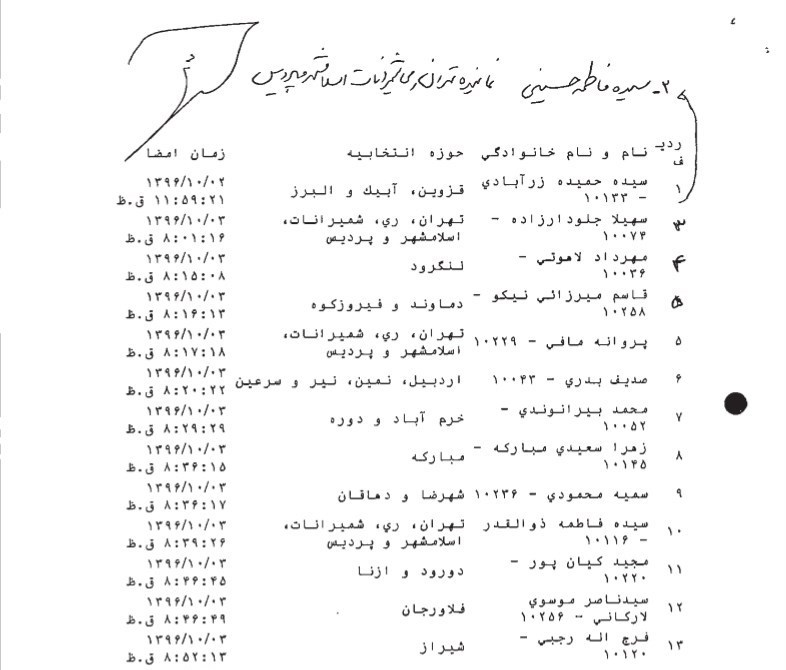 ۲- سیده فاطمه حسینی نماینده تهران، ری، شمیرانات، اسلامشهر و پردیس
ردیف نام و نام خانوادگي حوزه انتخابیه زمان امضا
۱ سیده حمیده زرآبادي - ۱۰۱۳۳ قزوین، آبیك و البرز ۱۳۹۶/۱۰/۰۲ ۱۱:۵۹:۲۱ ق.ظ
۳ سهیلا جلودارزاده - ۱۰۰۷۴ تهران، ري، شمیرانات، اسلامشهر و پردیس ۱۳۹۶/۱۰/۰۳ ۸:۰۱:۱۶ ق.ظ
۴ مهرداد لاهوتي - ۱۰۰۳۶ لنگرود ۱۳۹۶/۱۰/۰۳ ۸:۱۵:۰۸ ق.ظ
۵ قاسم میرزائي نیکو - ۱۰۲۵۸ دماوند و فیروزکوه ۱۳۹۶/۱۰/۰۳ ۸:۱۶:۱۳ ق.ظ
۵ پروانه مافي - ۱۰۲۲۹ تهران، ري، شمیرانات، اسلامشهر و پردیس ۱۳۹۶/۱۰/۰۳ ۸:۱۷:۱۸ ق.ظ
۶ صدیف بدري - ۱۰۰۴۳ اردبیل، نمین، نیر و سرعین ۱۳۹۶/۱۰/۰۳ ۸:۲۰:۲۲ ق.ظ
۷ محمد بیرانوندي - ۱۰۰۵۲ خرم آباد و دوره ۱۳۹۶/۱۰/۰۳ ۸:۲۹:۲۹ ق.ظ
۸ زهرا سعیدي مبارکه - ۱۰۱۴۵ مبارکه ۱۳۹۶/۱۰/۰۳ ۸:۳۶:۱۵ ق.ظ
۹ سمیه محمودي - ۱۰۲۳۶ شهرضا و دهاقان ۱۳۹۶/۱۰/۰۳ ۸:۳۶:۱۷ ق.ظ
۱۰ سیده فاطمه ذوالقدر - ۱۰۱۱۶ تهران، ري، شمیرانات، اسلامشهر و پردیس ۱۳۹۶/۱۰/۰۳ ۸:۳۹:۲۶ ق.ظ
۱۱ مجید کیان پور - ۱۰۲۲۰ دورود و ازنا ۱۳۹۶/۱۰/۰۳ ۸:۴۶:۴۵ ق.ظ
۱۲ سیدناصر موسوي لارگاني - ۱۰۲۵۶ فلاورجان ۱۳۹۶/۱۰/۰۳ ۸:۴۶:۴۹ ق.ظ
۱۳ فرج اله رجبي - ۱۰۱۲۰ شیراز ۱۳۹۶/۱۰/۰۳ ۸:۵۲:۱۳ ق.ظ